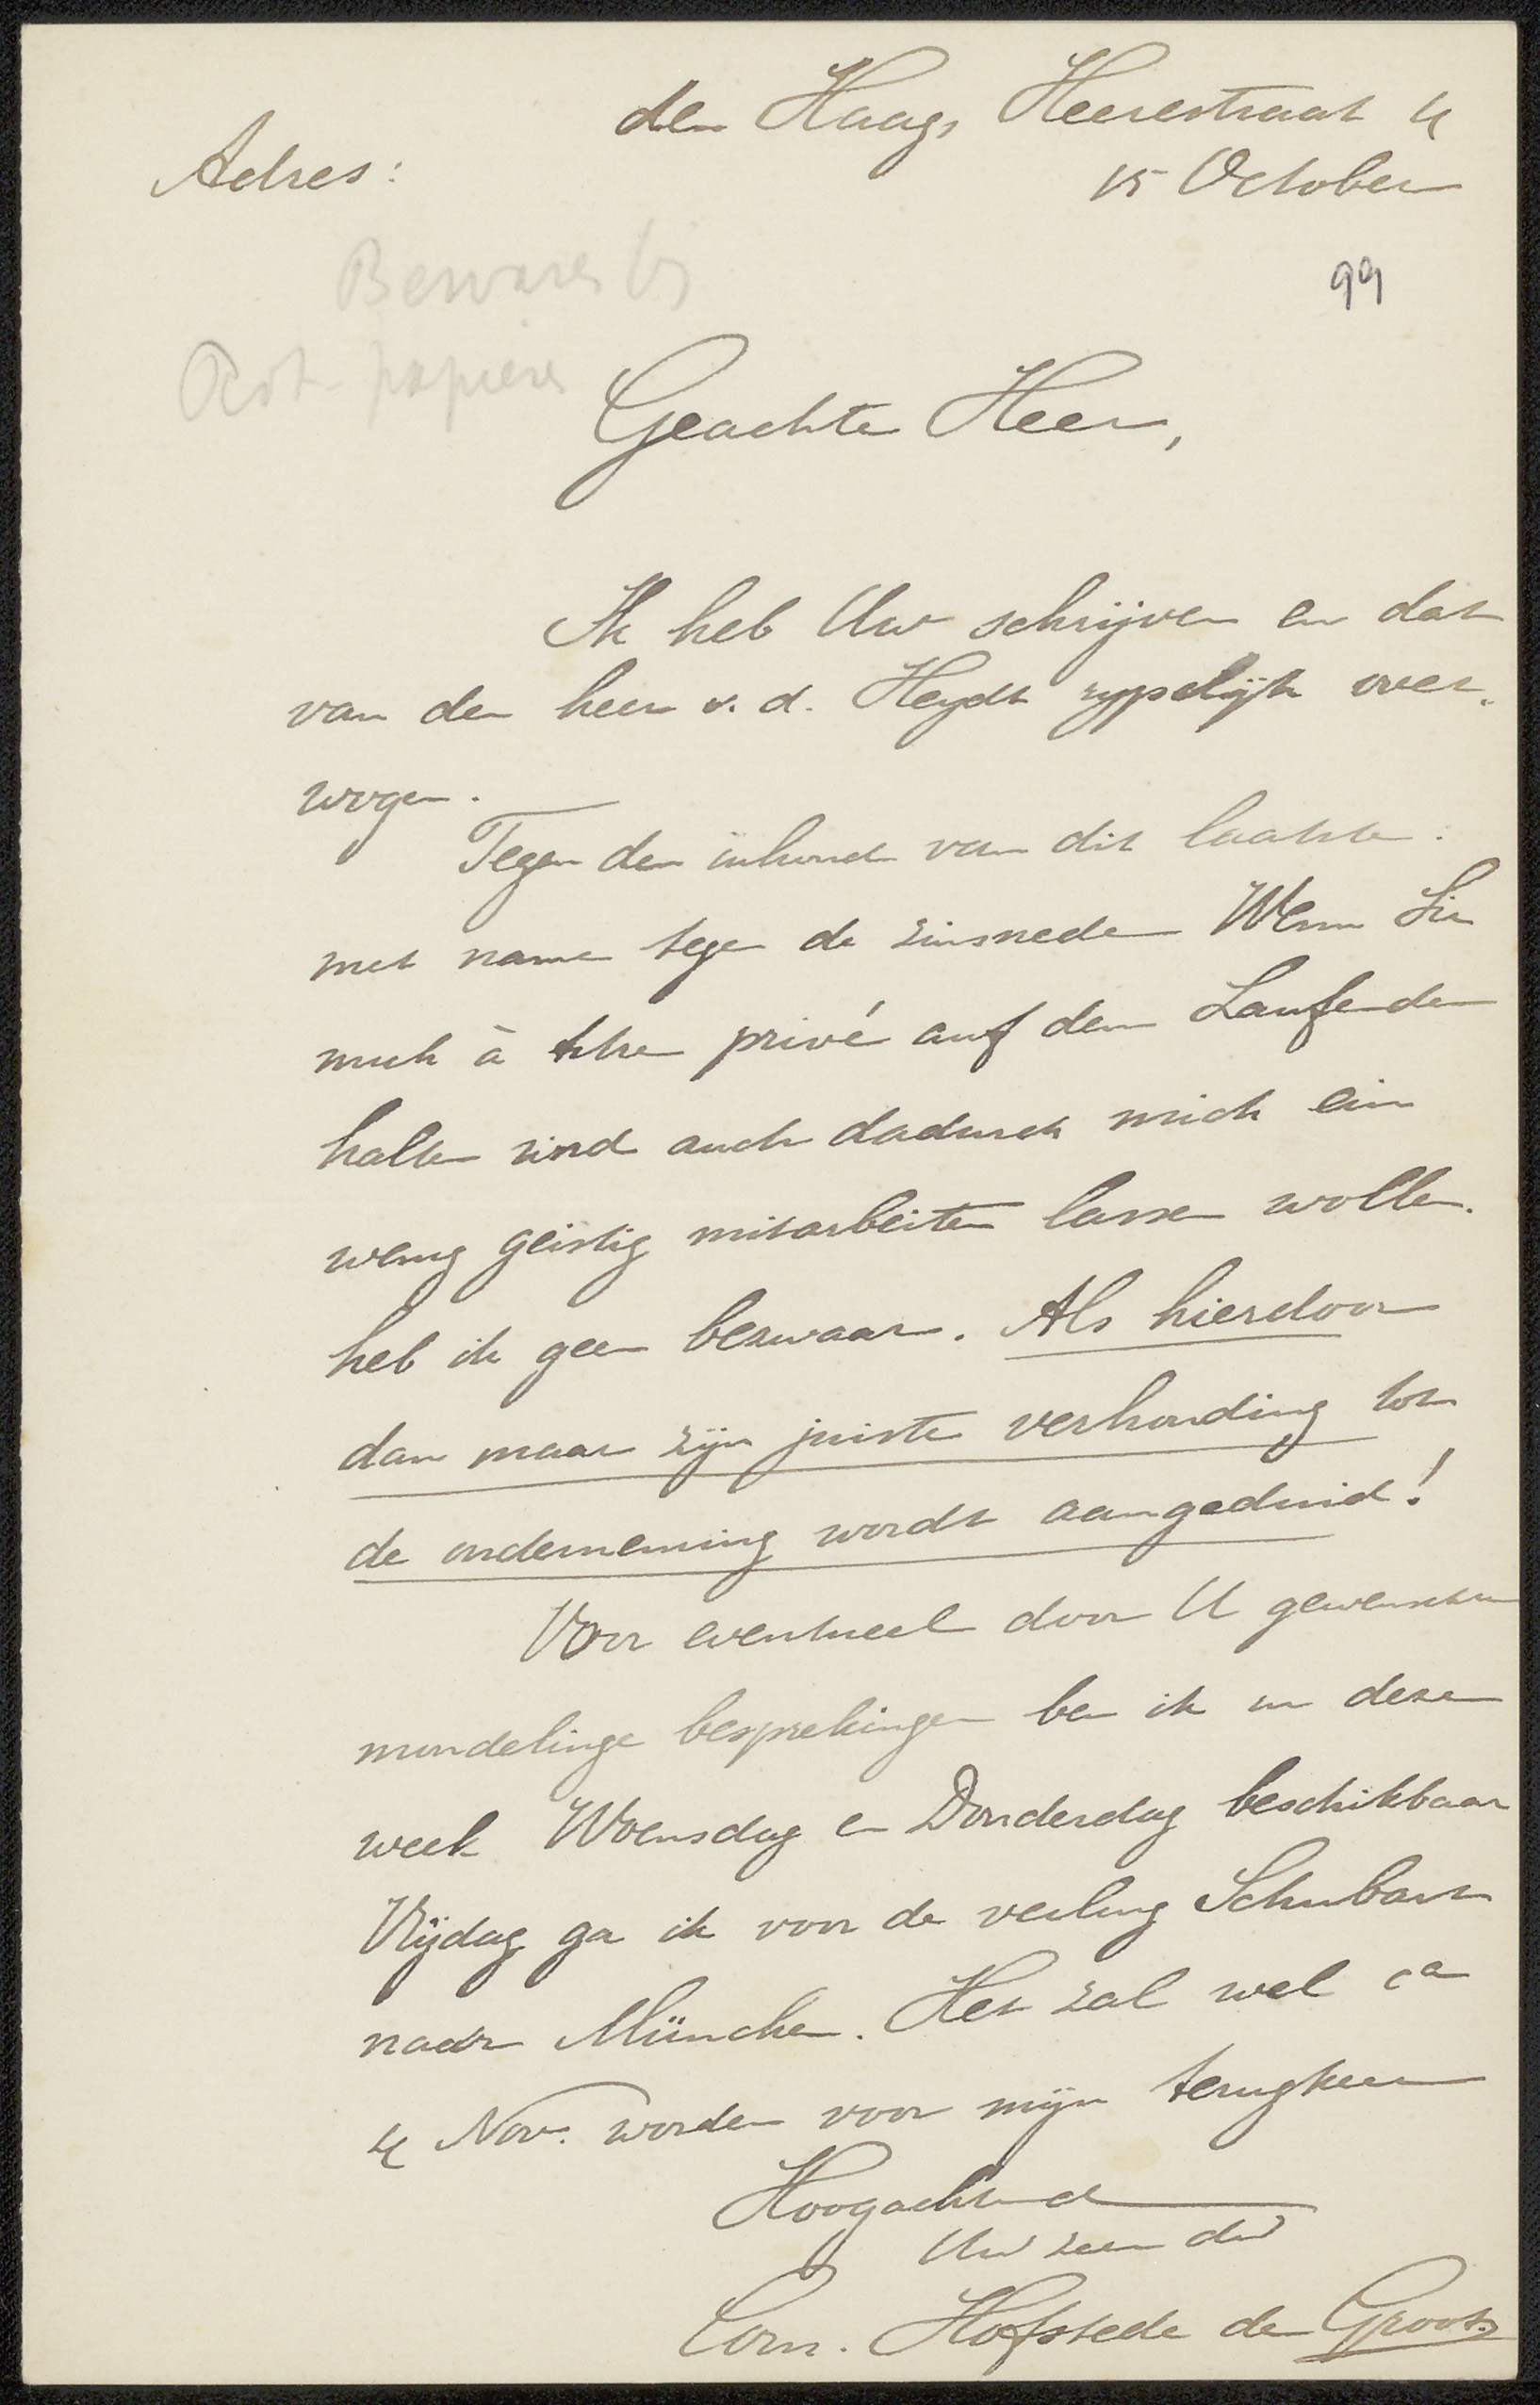 den Haag, Heerestraat 4
Adres:
15 October
Bewaren bij
papieren
99
Geachte Heer,
Ik heb Uw schrijven en dat
van den heer v. d. Heydt rypelijk over-
wogen.
Tegen den inhoud van dit laatste
met name tegen de zinsnede Wenn Sie
mich à titre privé auf dem Laufenden
halten und auch dadurch mich ein
wenig geistig mitarbeiten lassen wollen.
heb ik geen bezwaar. Als hierdoor
dan maar zijn juiste verhouding tot
de onderneming wordt aangeduid!
Voor eventueel door U gewenschte
mondelinge besprekingen ben ik in deze
week Woensdag en Donderdag beschikbaar
Vrijdag ga ik voor de veiling Schubart
naar München. Het zal wel ca
4 Nov. worden voor mijn terugkeer
Hoogachtend
Uw zeer dw
Corn. Hofstede de Groot.